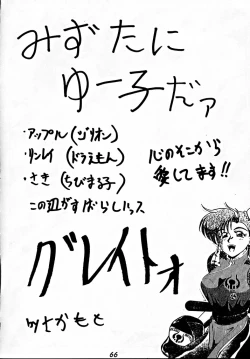 みずたに
ゆー子だァ
・アップル(ジリオン)
・リンレイ(ドラえもん)
・さき(ちびまる子)
この辺がすばらしいっス
心のそこから
愛してます!!
グレイトォ
66